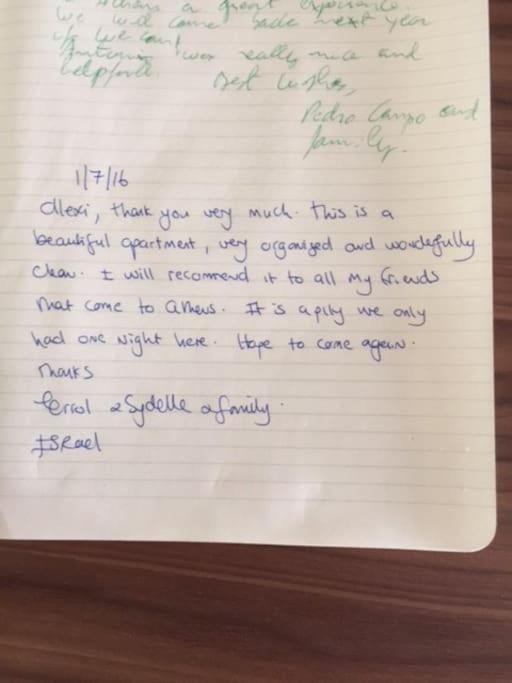 a great experience.
We will come back next year
if we can!
was really nice and
helpfull. Best wishes,
Pedro Campo and
family.
1/7/16
Alexi, thank you very much. This is a
beautiful apartment, very organized and wonderfully
clean. I will recommend it to all my friends
that come to Athens. It is a pity we only
had one night here. Hope to come again.
Thanks
Errol & Sydelle & family.
Israel